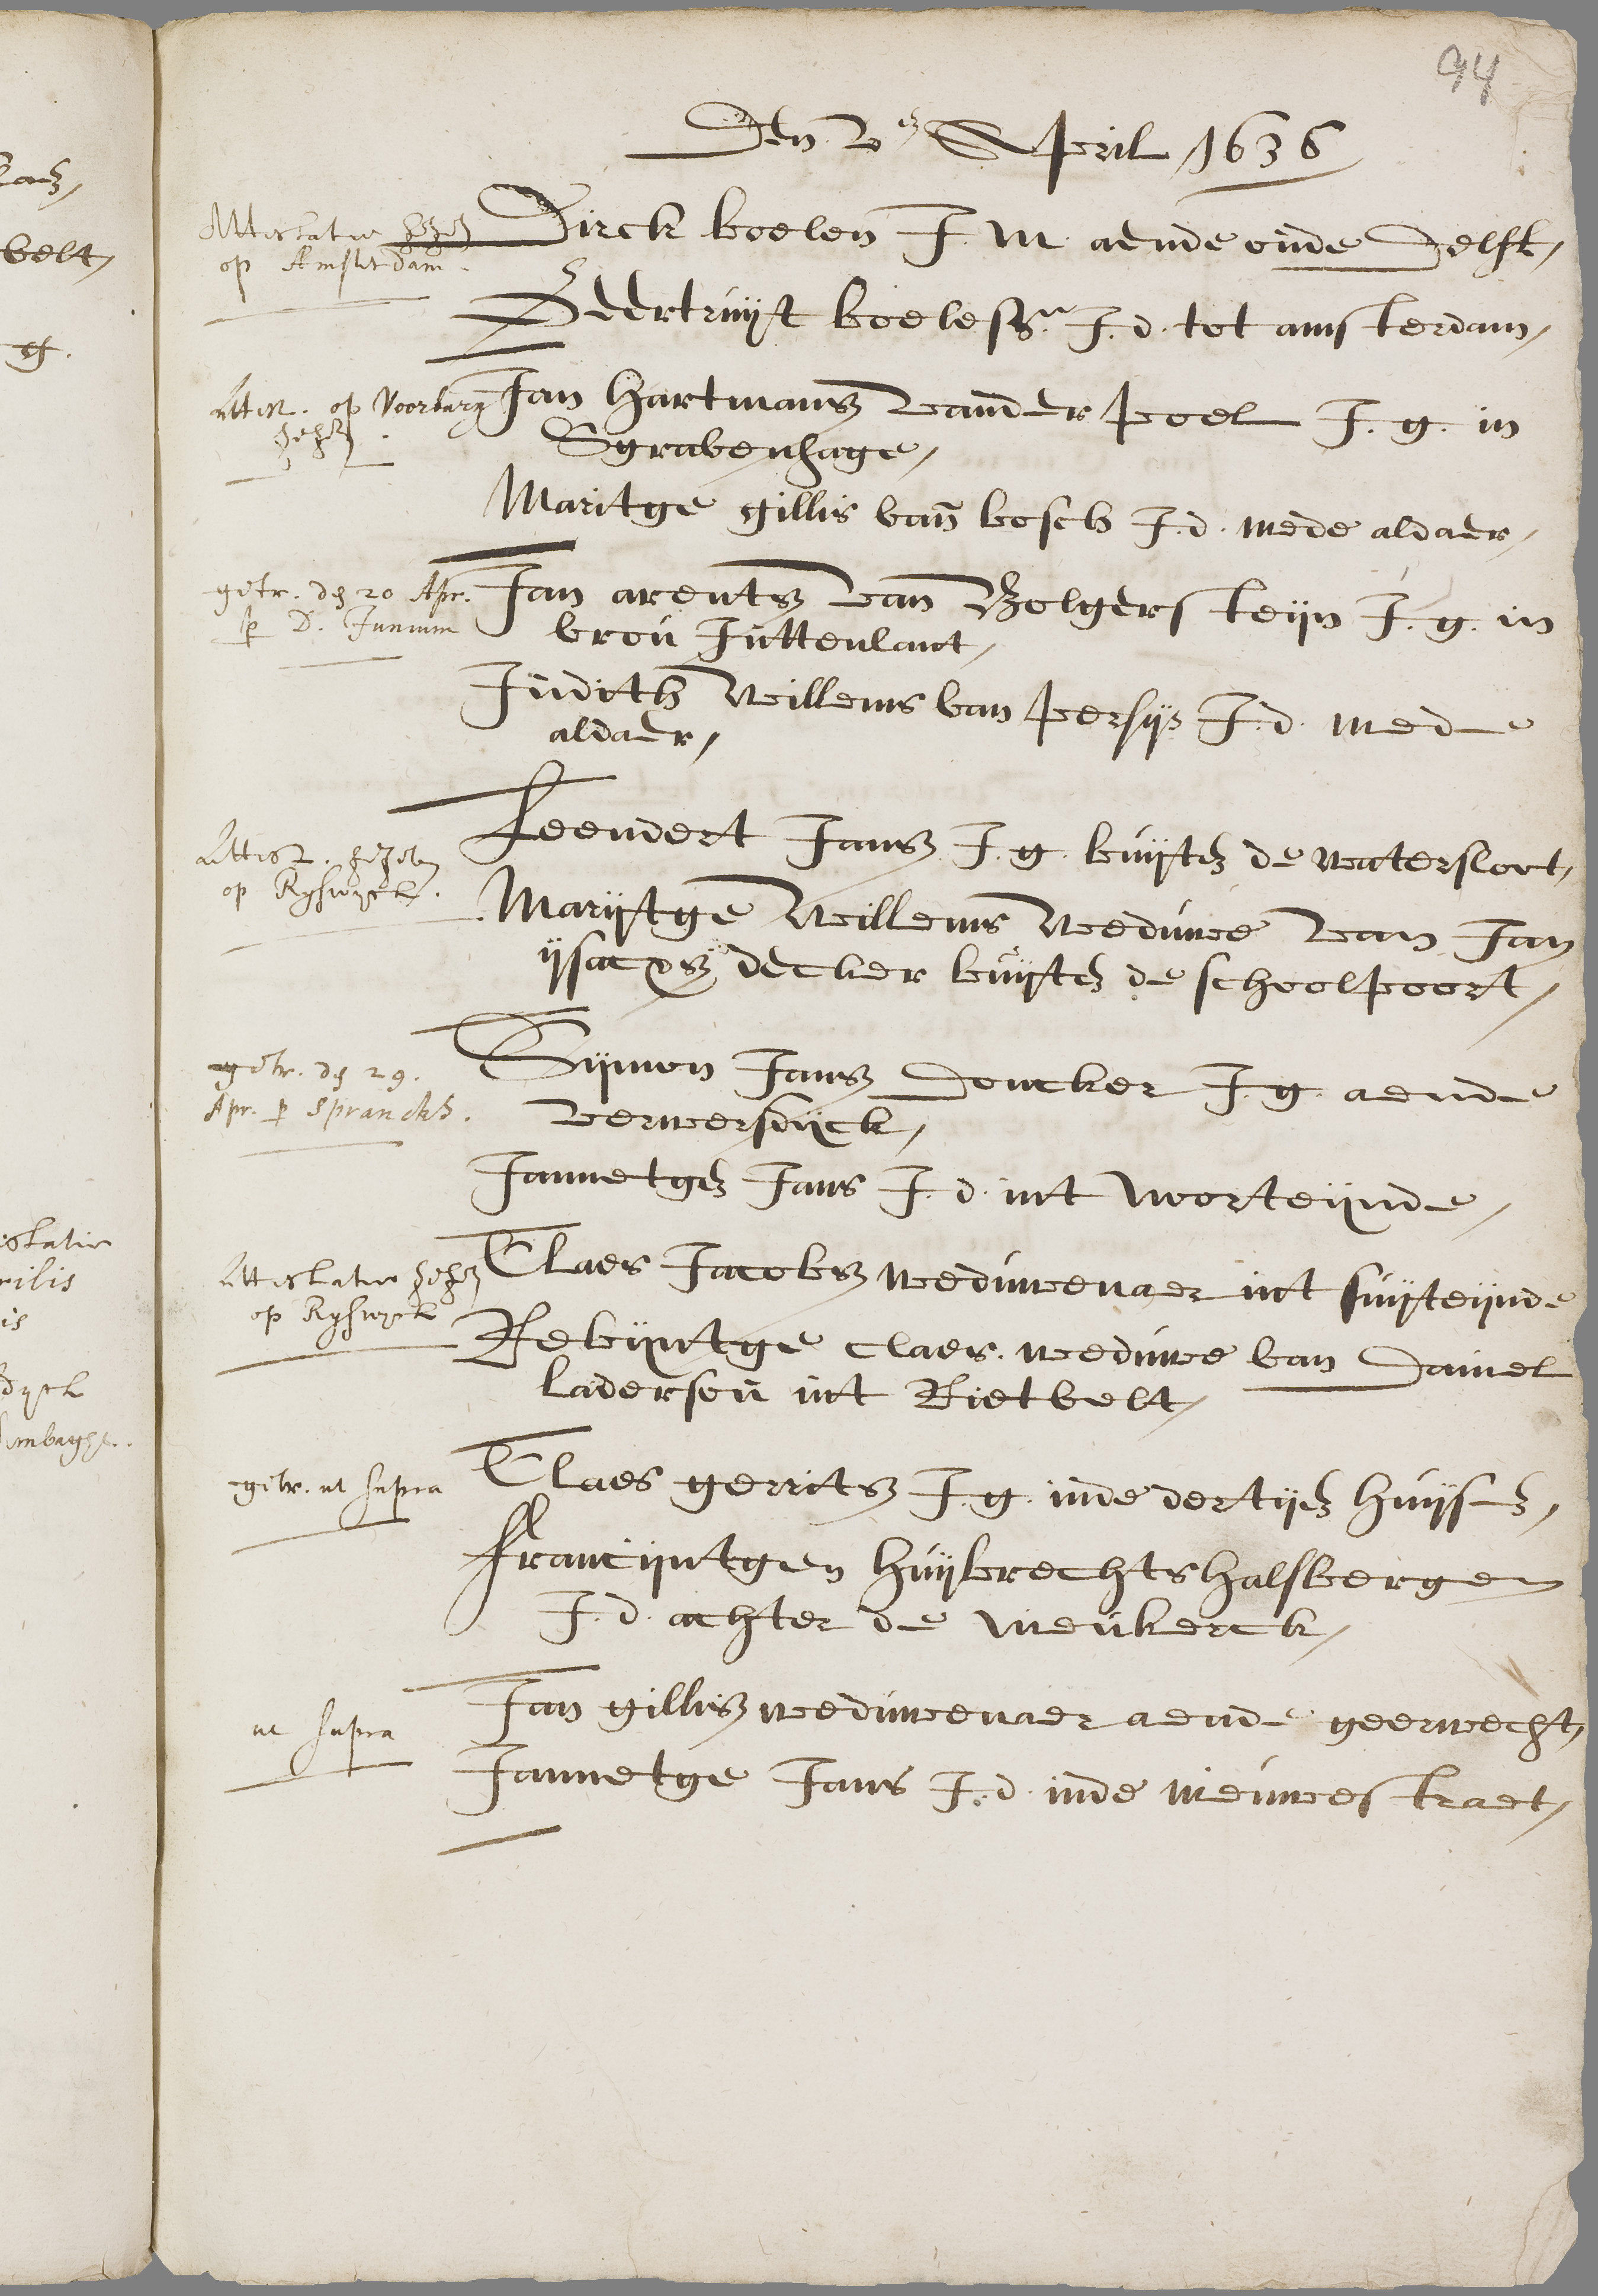 94
Den ven April 1636
Attestatie gegeven
op Amsterdam.
Dirck boelen J. M. aende oude Delft,
Geertruijt boeless. J. d. tot amsterdam,
Attest. op Voorburg
gegeven
Jan hartmansz vander poel J. g. in
Sgravenhage,
Maritge gillis van bosch J. d. mede aldaer,
getr. den 20 Apr.
p D. Junium
Jan arentsz van Bolgersteijn J. g. in
vrou Juttenlant,
Judith Willems van persijs J. d. mede
aldaer,
Attest. gegeven
op Ryswyck.
Leendert Jansz J. g. buijten de watersloot,
Marijtge Willems Weduwe van Jan
ijsacxsz decker buijten de schoolpoort,
getr. den 29.
Apr. p Spranckh.
Sijmon Jansz Doncker J. g. aende
verwersdijck,
Jannetgen Jans J. d. int Noorteijnde,
Attestatie gegeven
op Ryswyck
Claes Jacobsz weduwenaer int suijteijnde
Bebijntge claes. weduwe van Daniel
laderson int Rietvelt,
getr. ut supra
Claes gerritsz J. g. inde dertijen huijsen,
francijntgen huijbrechts halfbergen
J. d. achter de nieukerck,
ut supra
Jan gillisz weduwenaer aende geerwecht,
Jannetge Jans J. d. inde nieuwestraet,
velt,
g.